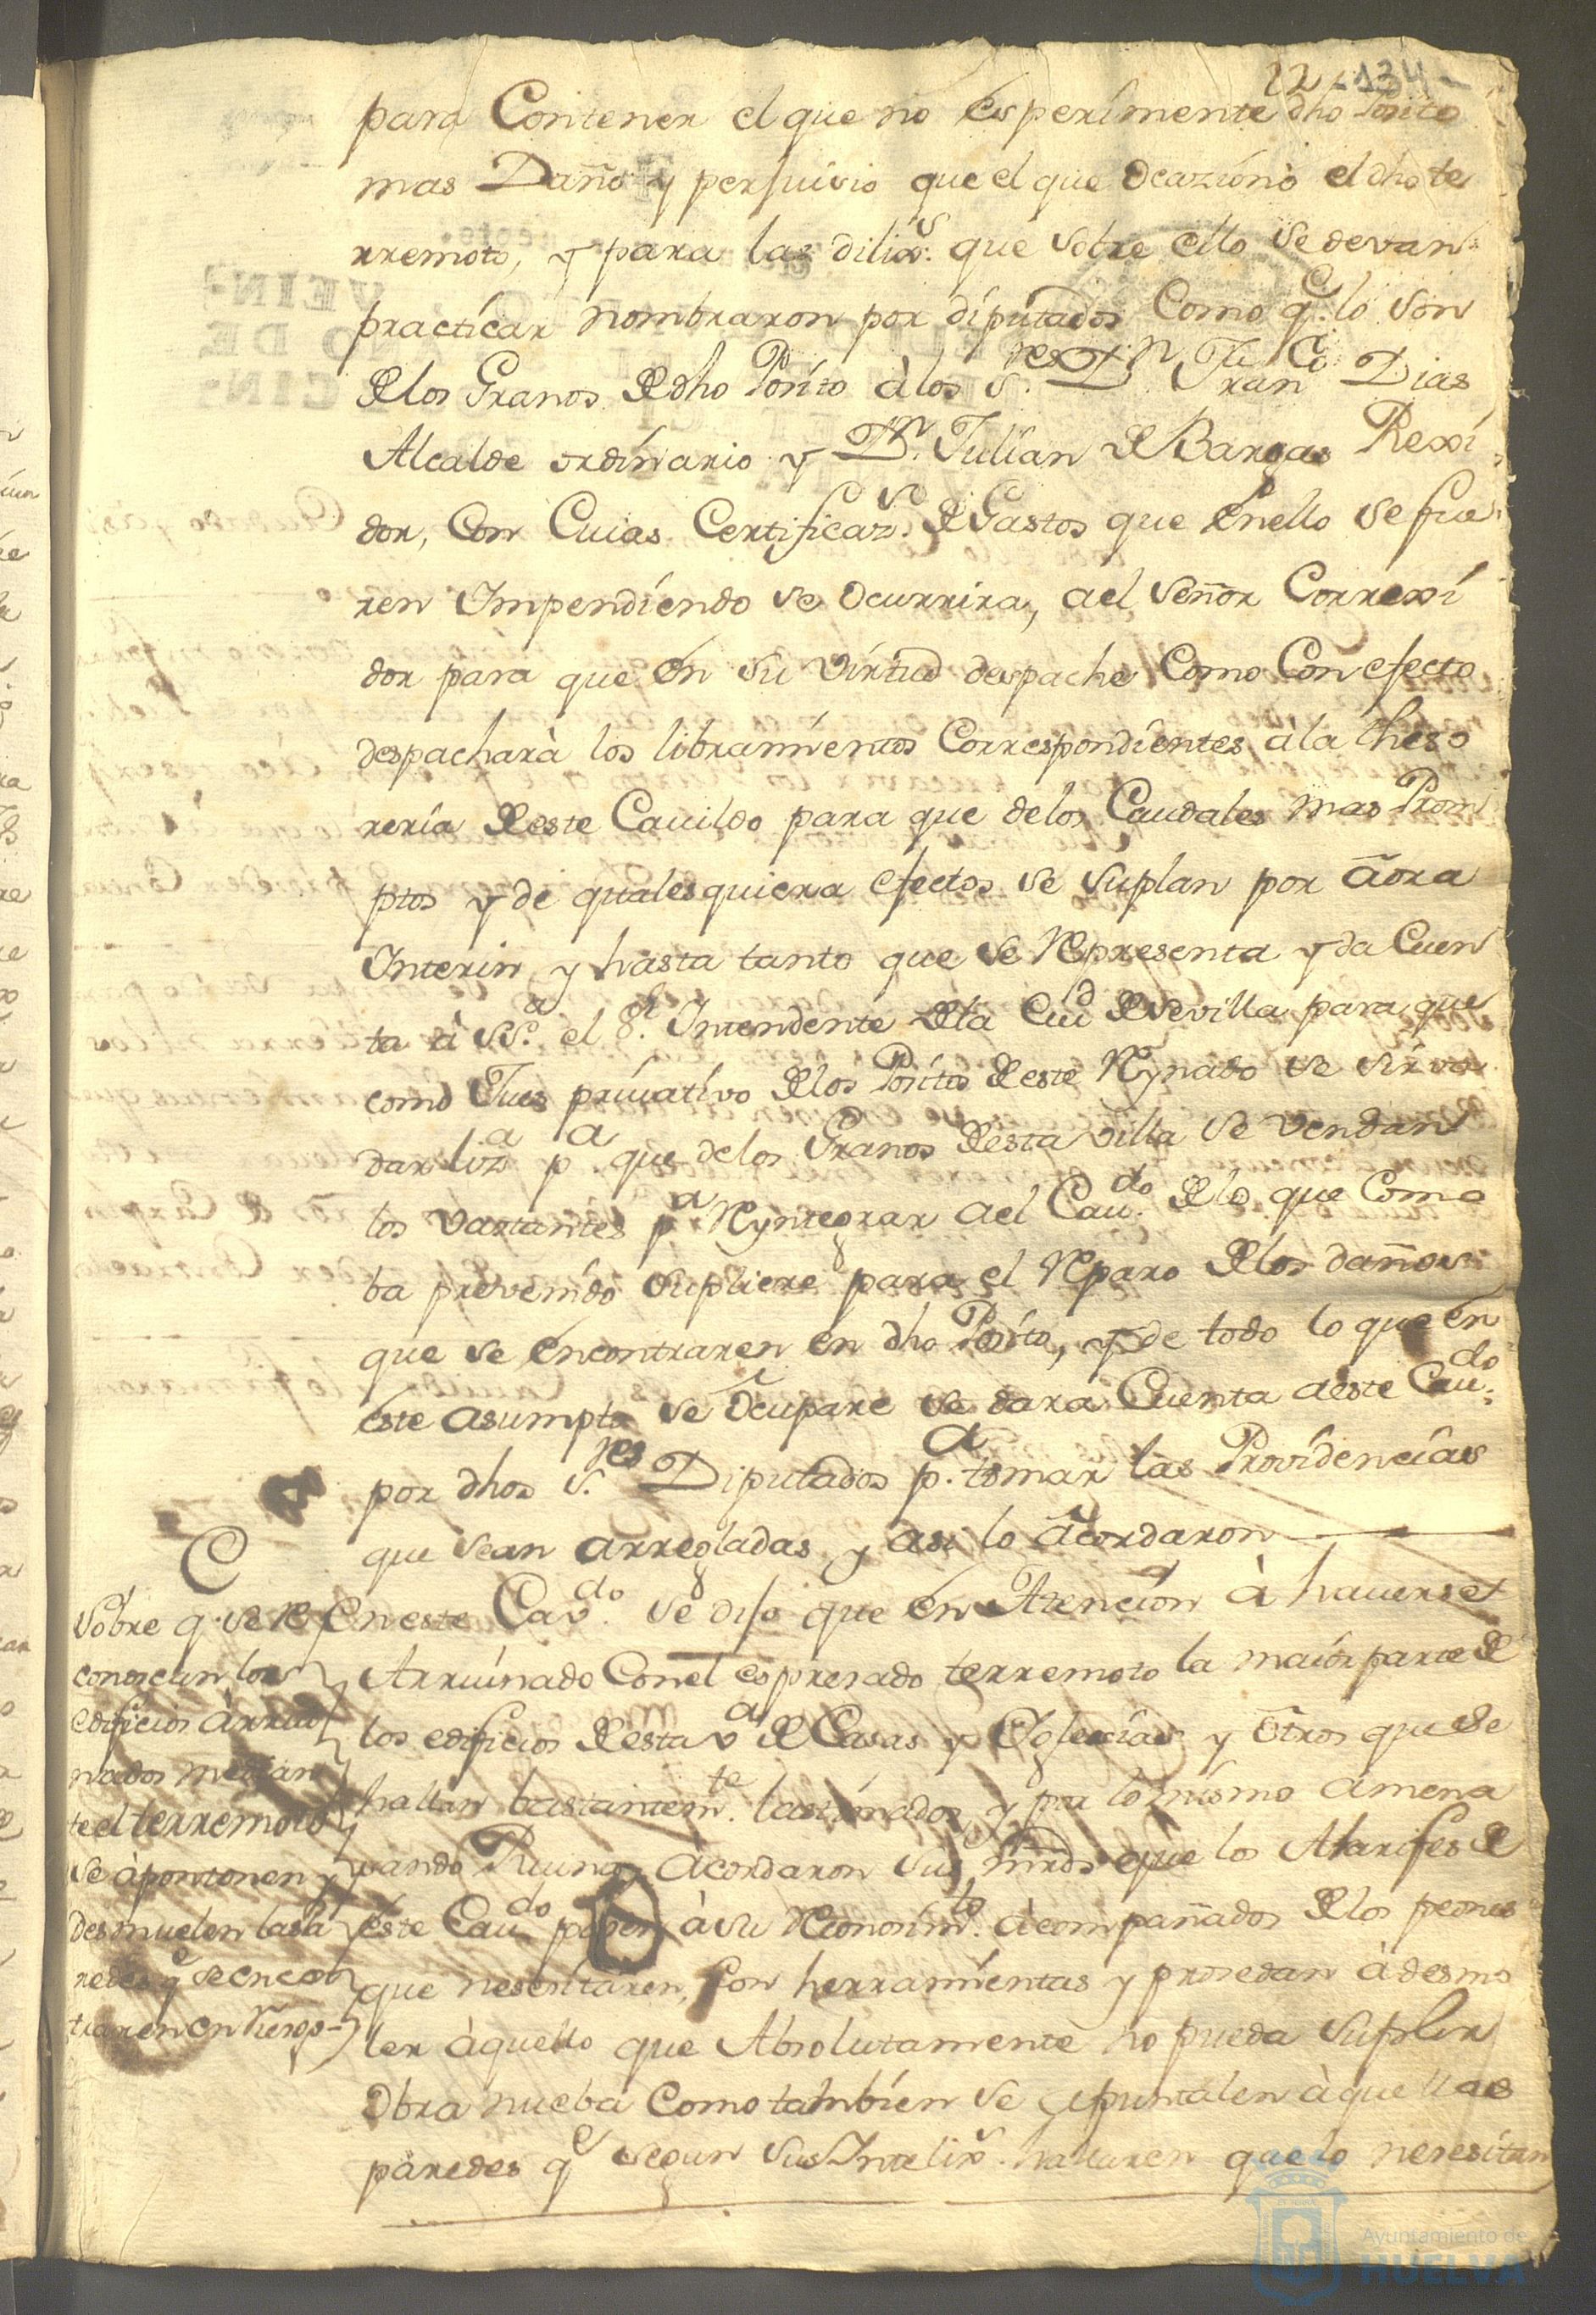 22 - 134 -
para Contener el que no esperimente dho Posito
mas Daño y perjuicio que el que ocazionò el dho te
rremoto, y para las dilixs. que sobre ello se devan
practicar nombraron por diputados Como qe. lo son
de los Granos de dho Posito à los Sres. Dn. Franco Dias
Alcalde ordinario y Dn. Julian de Bargas Rexi
dor, Con Cuias Certificazs. de Gastos que en ello se fue
ren Impendiendo se ocurrira, ael Señor Correxi
dor para que en su virtud despache Como Con efecto
despacharà los libramientos Correspondientes, a la theso
reria de este Cavildo para que de los Caudales mas Prom
ptos y de qualesquiera efectos se suplan por aora
Interin, y hasta tanto que se Representa y da Cuen
ta à SSa. el Sr. Intendente de la Ciud de Sevilla para que
como Jues privativo de los Positos de este Reynado se sirva
dar liza pa que de los Granos de esta villa se vendan
los vastantes pa Reyntegrar ael Cavdo. de lo que Como
ba prevenido supliere para el Reparo de los daños
que se encontraren en dho Posito, y de todo lo que en
este asumpto se ocupare se dara Cuenta a este Cavdo.
por dhos Sres Diputados pa. tomar las Providencias
que sean arregladas y asi lo acordaron
Sobre q. se re
conoscan los
edificios àrrui
nados median
te el terremoto
se àpontonen y
desmuelen las pa
redes qe se encon
traren en riesgo-
En este Cavdo. se dijo que en Atencion à haverse
Arruinado Con el espresado terremoto la maior parte de
los edificios de esta va de Casas y Iglecias y otros que se
hallan bastantemte. lastimados y por lo mismo amena
zando Ruina, acordaron sus mrds que los Alarifes de
este Cavdo pasen à su Reconosimto. àcompañados de los peones
que nesesitaren, con herramientas y prosedan à desmo
ler àquello que Absolutamente no pueda suplir
Obra nueba Como tambien se apuntalen àquellas
paredes qe segun sus Intelixs. hallaren que lo nesesitan
Ayuntamiento de
HUELVA